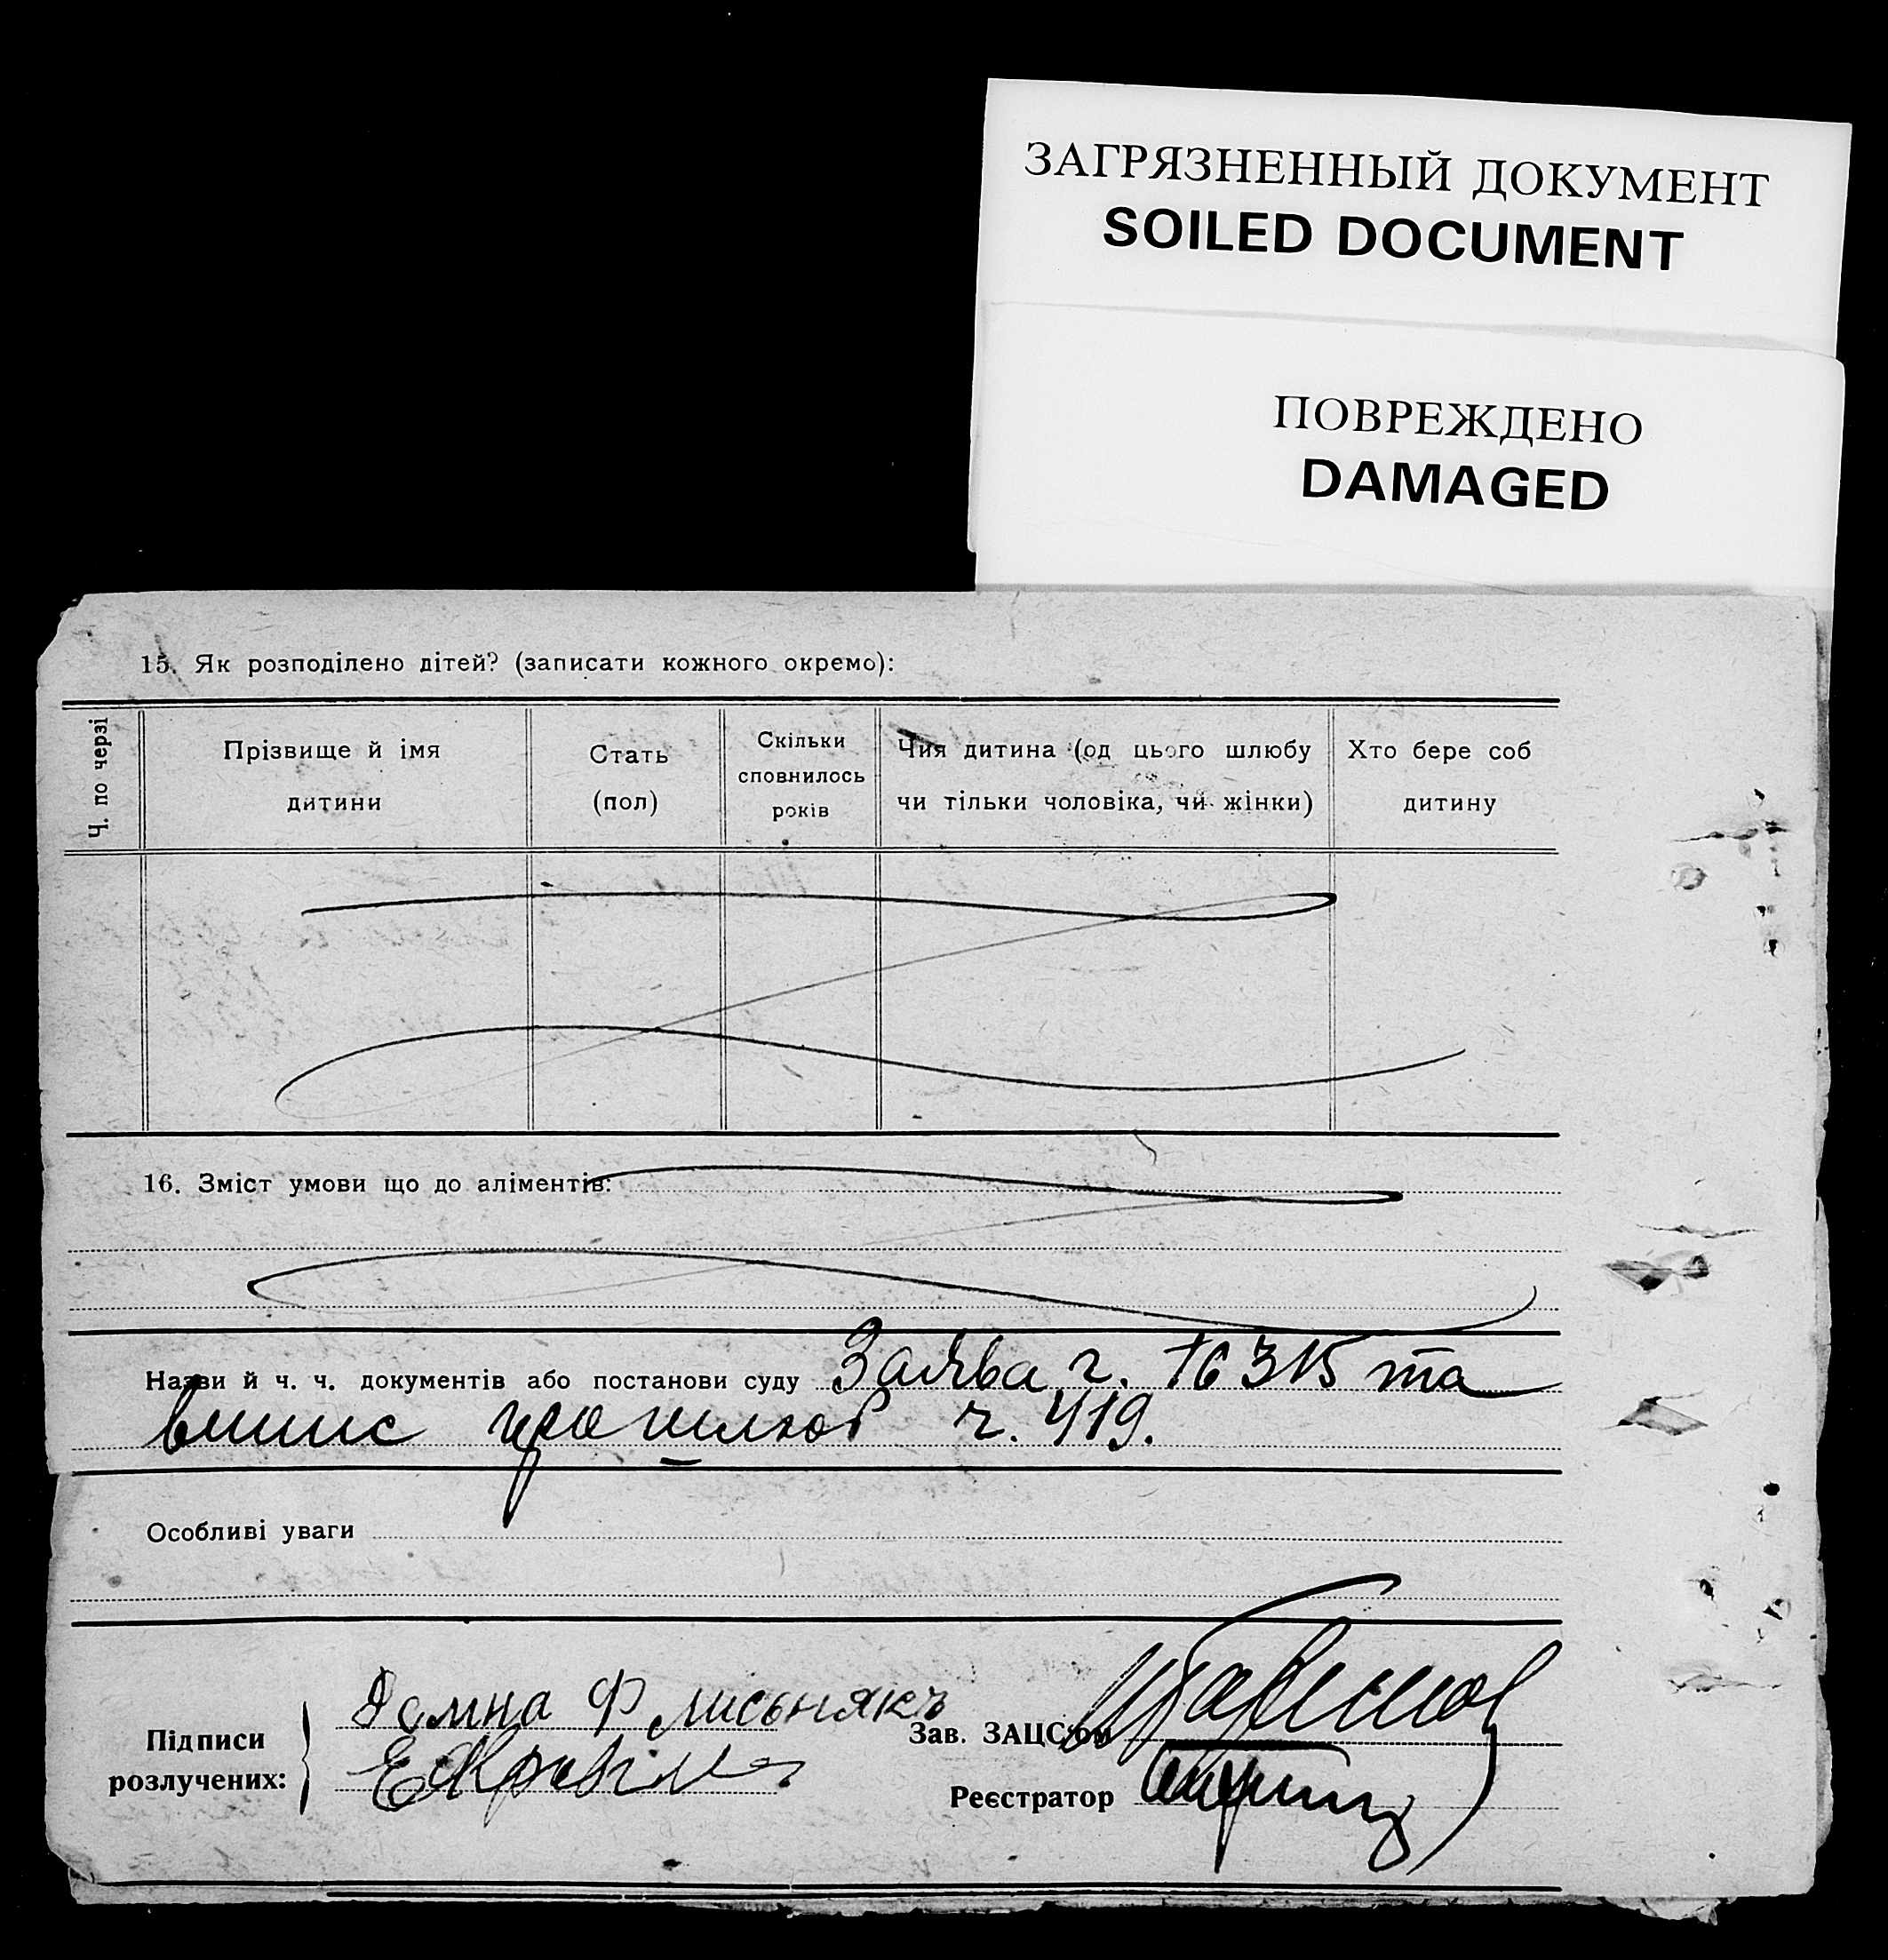 ЗАГРЯЗНЕННЫЙ ДОКУМЕНТ
SOILED DOCUMENT
ПОВРЕЖДЕНО
DAMAGED
15. Як розподілено дітей? (записати кожного окремо):
Ч. по черзі
Прізвище й імя
дитини
Стать
(пол)
Скільки
сповнилось
років
Чия дитина (од цього шлюбу
чи тільки чоловіка, чи жінки)
Хто бере соб
дитину
16. Зміст умови що до аліментів:
Назви й ч. ч. документів або постанови суду Заява ч. 16315 та
випис про шлюб ч. 419.
Особливі уваги
Підписи
розлучених:
Домна Ф
Зав. ЗАЦС'ом
Реєстратор